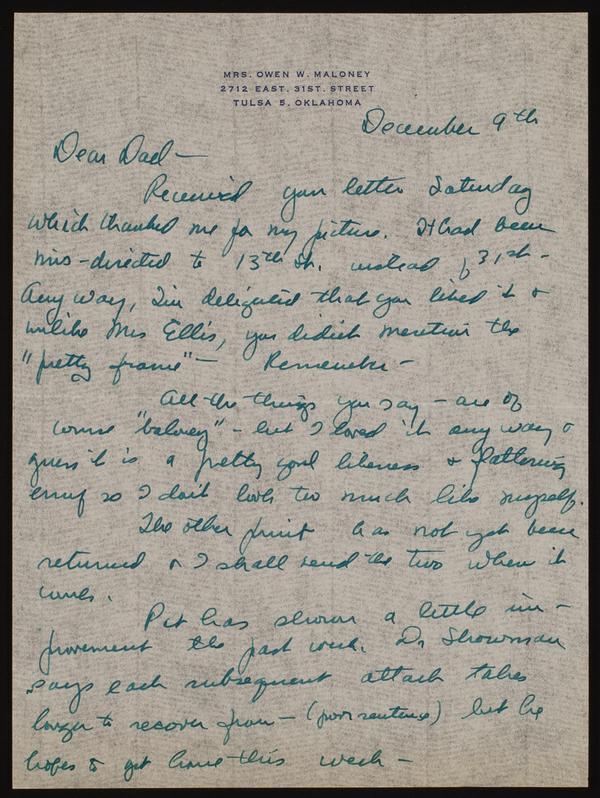 MRS. OWEN W. MALONEY
2712 EAST. 31ST. STREET
TULSA 5, OKLAHOMA
December 9th
Dear Dad —
Received your letter Saturday
which thanked me for my picture. It had been
mis-directed to 13th St. instead of 31st -
Any way, I'm delighted that you liked it &
unlike Mrs Ellis, you didn't mention the
"pretty frame" — Remember —
All the things you say — are of
course "baloney" - but I loved it any way &
guess it is a pretty good likeness & flattering
enuf so I don't look too much like myself.
The other print has not yet been
returned & I shall send the two when it
comes.
Pat has shown a little im-
provement the past week. Dr Showman
says each subsequent attack takes
longer to recover from — (poor sentence) but he
hopes to get home this week —